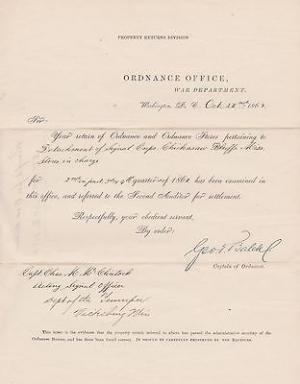 PROPERTY RETURNS DIVISION
ORDNANCE OFFICE,
WAR DEPARTMENT,
Washington D. C. Oct. 22nd 186
Sir:
Your return of Ordnance and Ordnance Stores pertaining to
Detachment of Signal Corps, Chickasaw Bluffs Miss
Stores in charge
for 2nd in part, 3rd & 4th quarters of 186 has been examined in
this office, and referred to the Second Auditor for settlement.
Respectfully, your obedient servant,
By order:
Geo. T. Balch
Captain of Ordnance.
Capt Chas. M. McClintock
Acting Signal Officer
Dept of the Tennessee
Vicksburg Miss
This letter is the evidence that the property return referred to above has passed the administrative scrutiny of the
Ordnance Bureau, and has been found correct. IT SHOULD BE CAREFULLY PRESERVED BY THE RECEIVER.